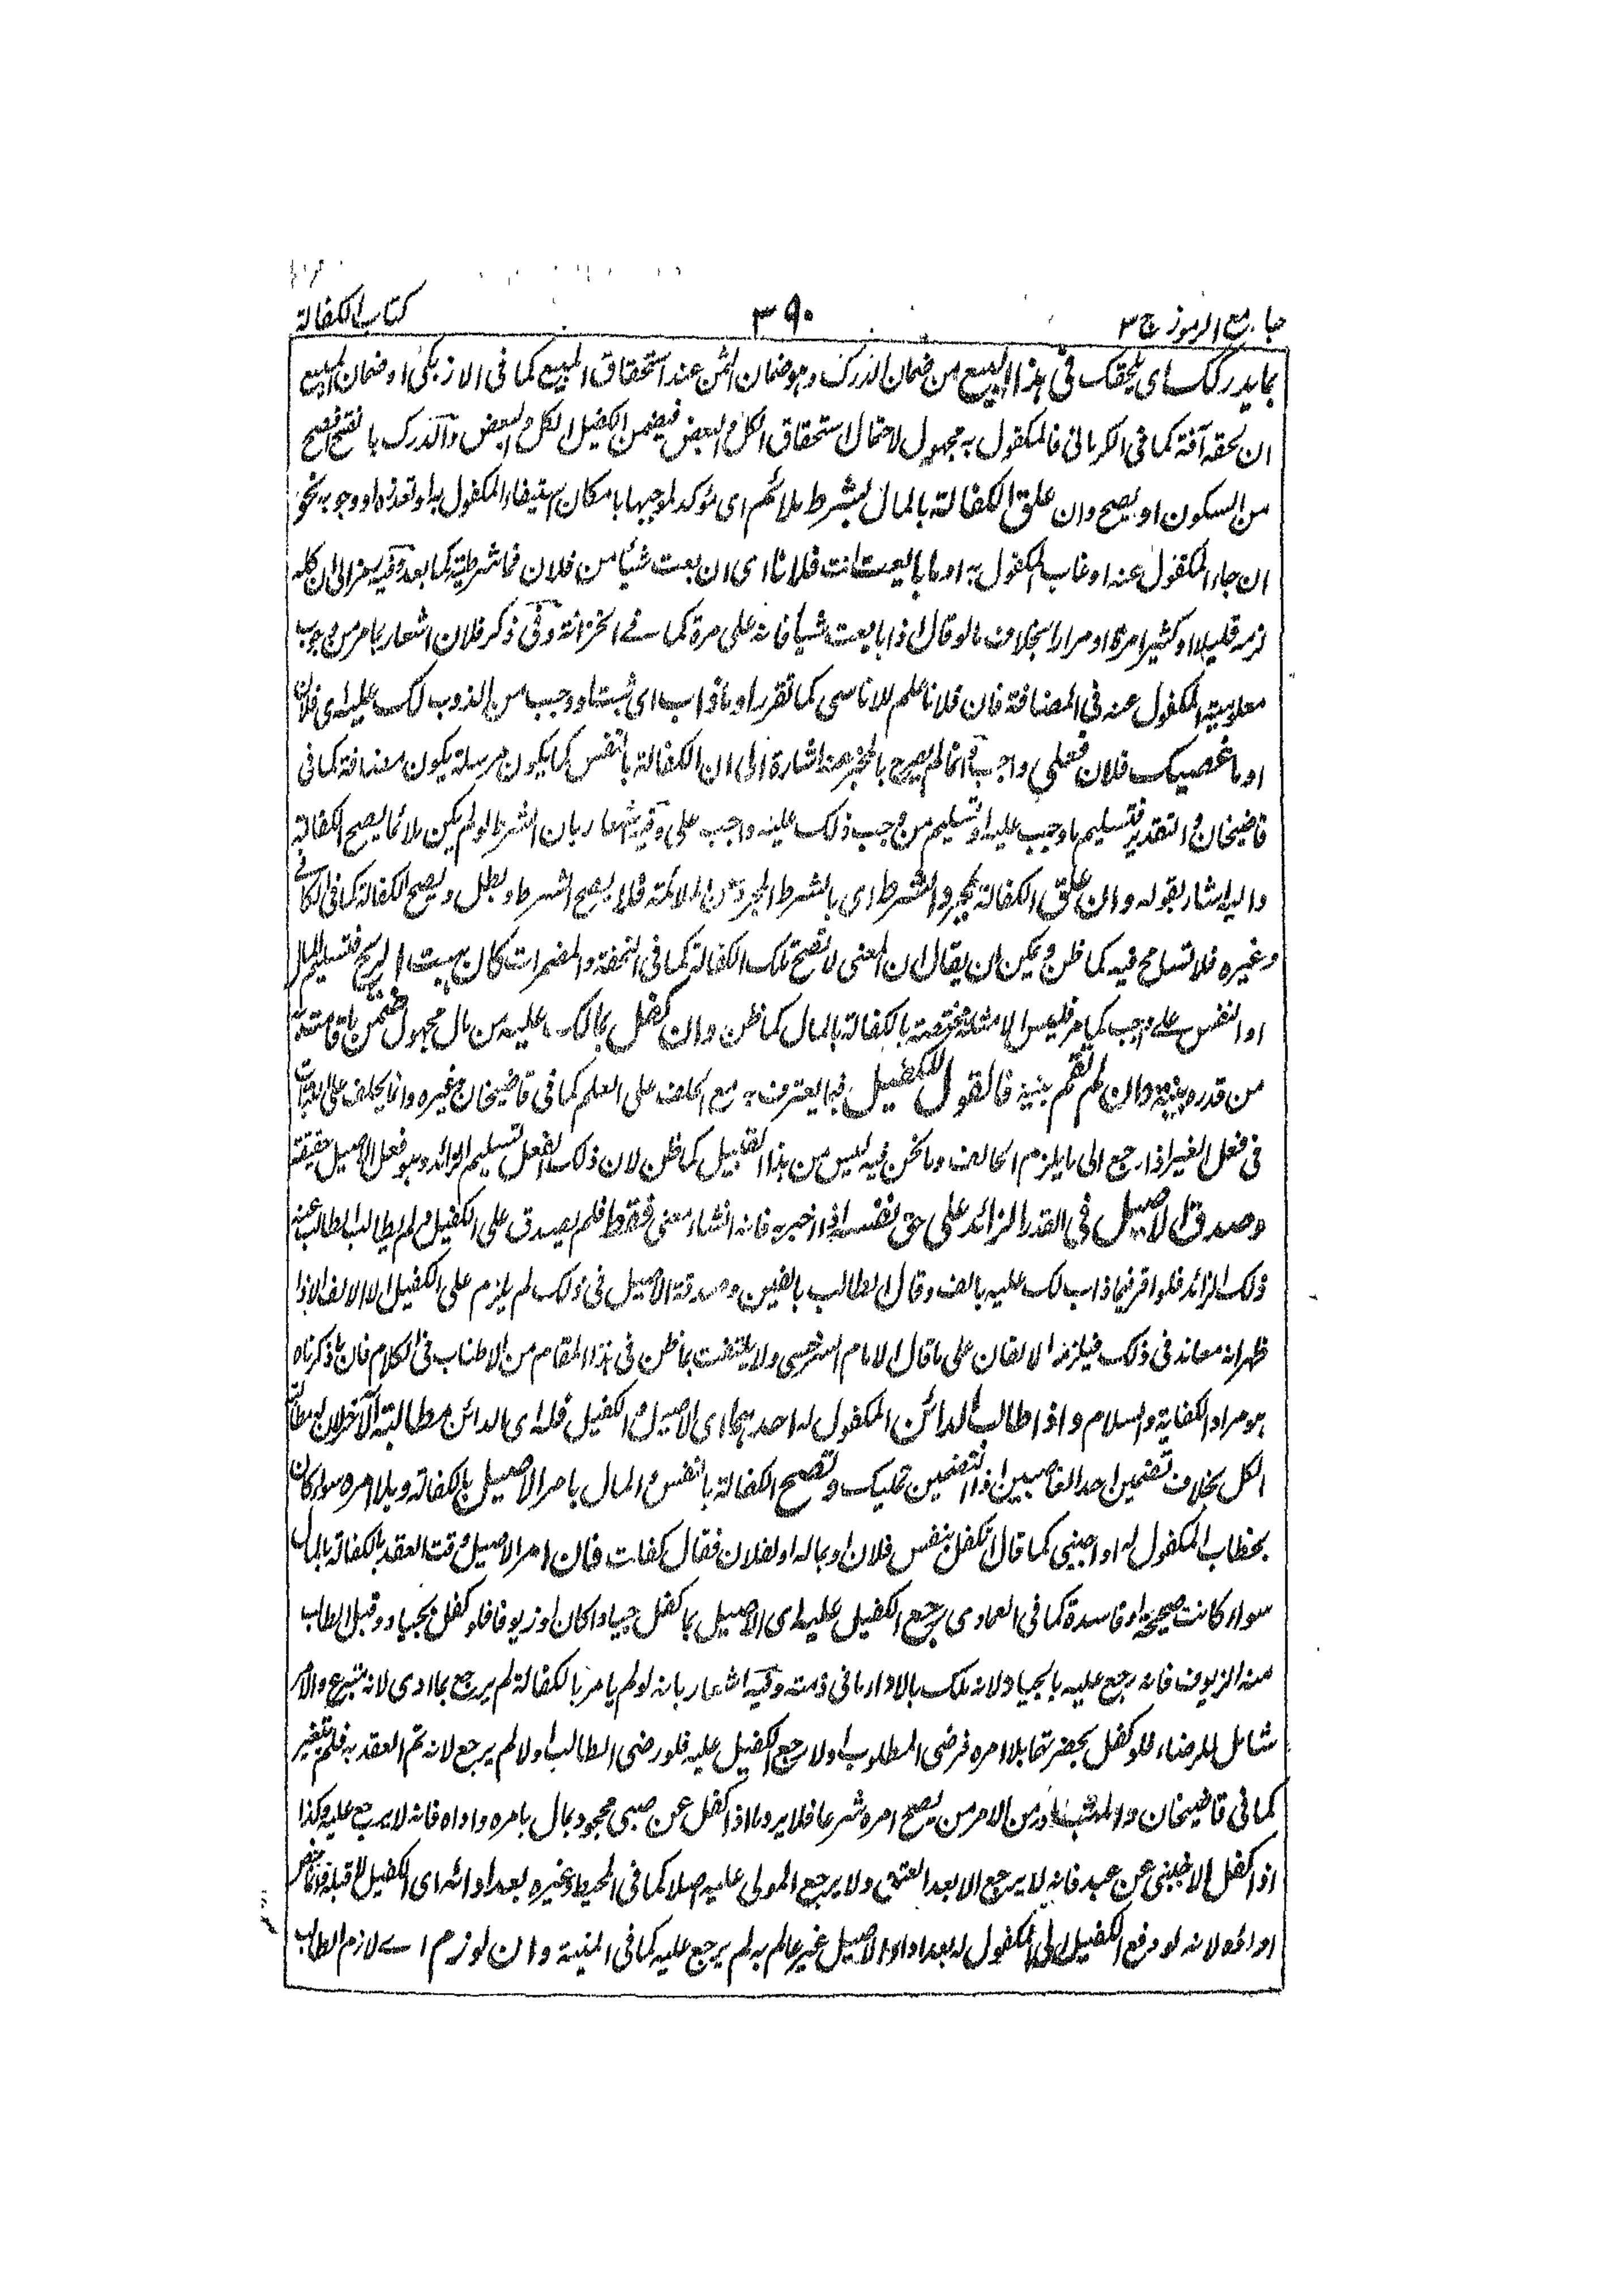 جامع الرموز ج ٣
٣٩٠
كتاب الكفالة
بما يدركك اى يلحقك فى هذا البيع من ضمان الدرك وهو ضمان الثمن عند استحقاق المبيع كما فى الازبكى او ضمان المبيع
ان لحقه آفة كما فى الكرمانى فالمكفول به مجهول لاحتمال استحقاق الكل والبعض فيضمن الكفيل الكل والبعض والدرك بالفتح فصيح
من السكون او يصح وان علق الكفالة بالمال بشرط ملائم اى مؤكد لموجبها بامكان استيفاء المكفول به او تعذره او وجوبه نحو
ان جاء المكفول عنه او غاب المكفول به او ما بايعت انت فلانا اى ان بعت شيئا من فلان فما شرطية كما بعد وفيه رمز الى ان كله
لزمه قليلا او كثيرا مرة او مرارا بخلاف ما لو قال اذا بايعت شيئا فانه على مرة كما فے الخزانة وفى ذكر فلان اشعار بما مر من وجوب
معلومية المكفول عنه فى المضافة فان فلانا علم للاناسى كما تقرر او ما ذاب اى ثبت او وجب من الذوب لك عليه اى فلان
او ما غصبك فلان فعلى واجب وانما لم يصرح بالخبر اشارة الى ان الكفالة بالنفس كما يكون مرسلة يكون مضافة كما فى
قاضيخان والتقدير فتسليم ما وجب عليه او تسليم من وجب ذلك عليه واجب على وفيه اشعار بان الشرط لو لم يكن ملائما يصح الكفالة
واليه اشار بقوله وان علق الكفالة بمجرد الشرط اى بالشرط المجرد عن الملائمة فلا يصح الشرط و بطل و يصح الكفالة كما فى الكافے
وغيره فلا تسامح فيه كما ظن ويمكن ان يقال ان المعنى لا تصح تلك الكفالة كما فى التحفة والمضمرات كان هبت الريح فتسليم المال
او النفس علے واجب كما مر فليس الامثلة مختصة بالكفالة بالمال كما ظن وان كفل بمالك عليه من مال مجهول ضمن ما قامت به
من قدره بينة وان لم تقم بينة فالقول للكفيل فيما يعترف به مع الحلف على العلم كما فى قاضيخان وغيره وانما يحلف على
فى فعل الغير اذا رجع الى ما يلزم الحالف وما نحن فيه ليس من هذا القبيل كما ظن لان ذلك الفعل تسليم الزائد وهو فعل الاصيل حقيقة
وصدق الاصيل فى القدر الزائد على حق نفسه اذا اخبر به فانه انشاء معنى فقط فلم يصدق على الكفيل ولم يطالب الطالب عنه
ذلك الزائد فلو اقر فيما ذاب لك عليه بالف وقال الطالب بالفين وصدقه الاصيل فى ذلك لم يلزم على الكفيل الا الالف الا اذا
ظهر انه معاند فى ذلك فيلزمه الالفان على ما قال الامام السرخسى ولا يلتفت بما ظن فى هذا المقام من الاطناب فى الكلام فان ما ذكرناه
هو مراد الكفاية والسلام واذا طالب الدائن المكفول له احدهما اى الاصيل والكفيل فله اى الدائن مطالبة الآخر لان له مطالبة
الكل بخلاف تضمين احد الغاصبين اذ التضمين تمليك و تصح الكفالة بالنفس والمال بامر الاصيل بالكفالة وبلا امره سواء كان
بخطاب المكفول له او اجنبى كما قال تكفل بنفس فلان او بماله او لفلان فقال كفلت فان امر الاصيل وقت العقد بالكفالة بالمال
سواء كانت صحيحة او فاسدة كما فى العمادى رجع الكفيل عليه اى الاصيل بما كفل جيادا كان او زيوفا فلو كفل بجياد و قبل الطالب
منه الزيوف فانه رجع عليه بالجياد لانه ملك بالاداء ما فى ذمته وفيه اشعار بانه لو لم يامر بالكفالة لم يرجع بما ادى لانه متبرع والامر
شامل للرضاء فلو كفل بحضرتهما بلا امره فرضى المطلوب اولا رجع الكفيل عليه فلو رضى الطالب اولا لم يرجع لانه تم العقد به فلم يتغير
كما فى قاضيخان والمتبادر من الامر من يصح امره شرعا فلا يرد ما اذا كفل عن صبى محجور بمال بامره واداه فانه لا يرجع عليه وكذا
اذا كفل الاجنبى عن عبد فانه لا يرجع الا بعد العتق ولا يرجع المولى عليه اصلا كما فى المحيط وغيره بعد ادائه اى الكفيل لا قبله
ادائه لانه لو دفع الكفيل الى المكفول له بعد اداء الاصيل غير عالم به لم يرجع عليه كما فى المنية وان لوزم اے لازم الطالب